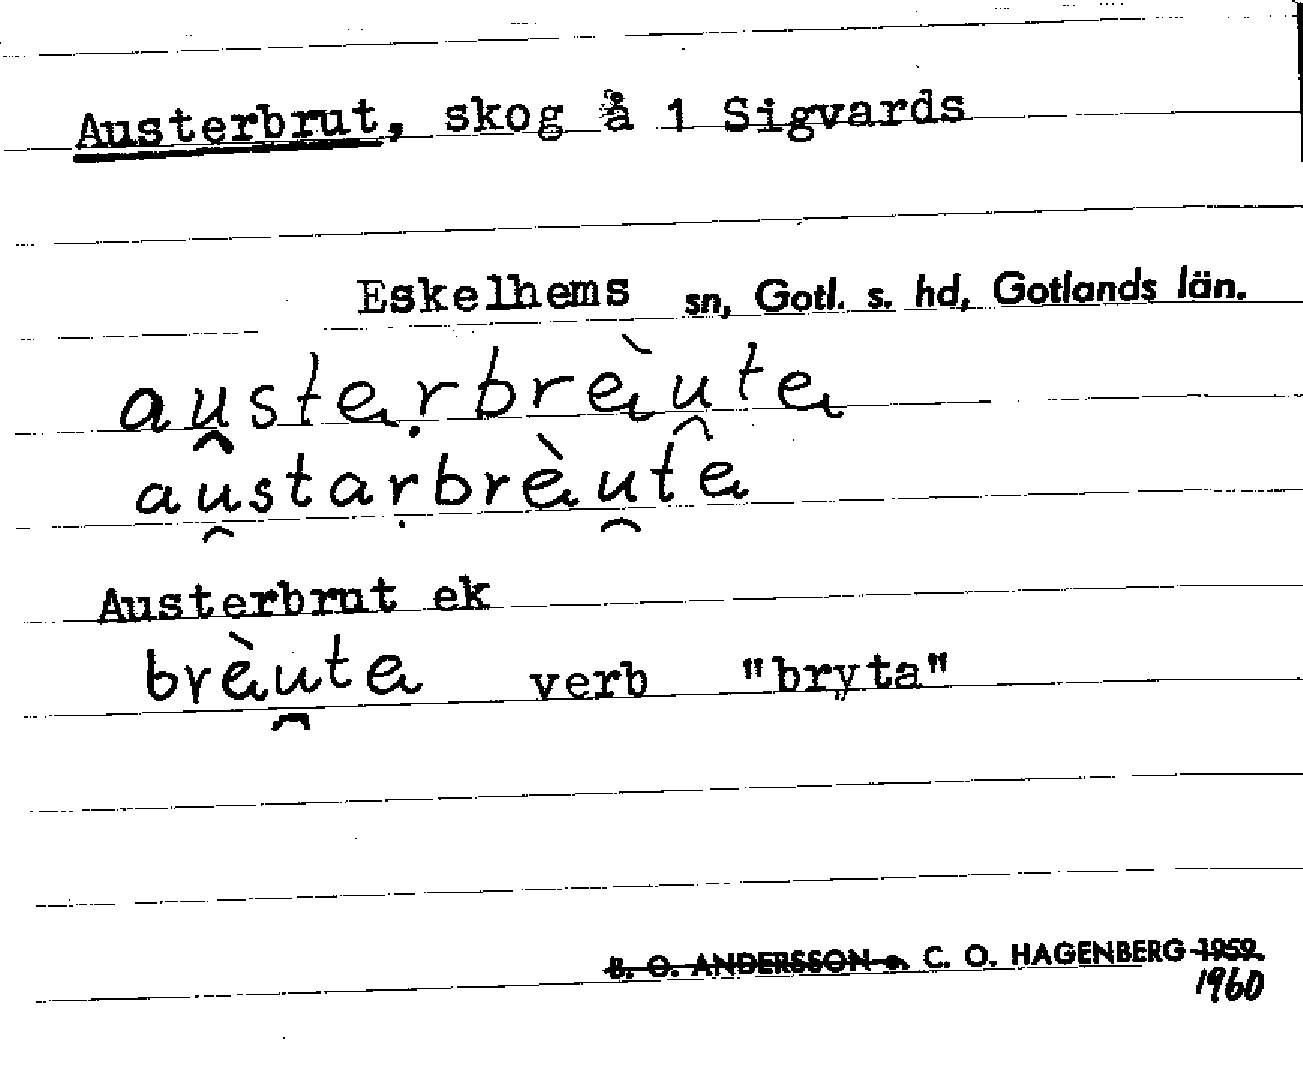 Austerbrut, skog å 1 Sigvards
Eskelhems sn, Gotl. s. hd, Gotlands län.
au̯stEṛbrÈu̯tE
au̯staṛbrÈu̯tE
Austerbrut ek
brÈu̯tE verb "bryta"
B. O. ANDERSSON o. C. O. HAGENBERG 1959.
1960